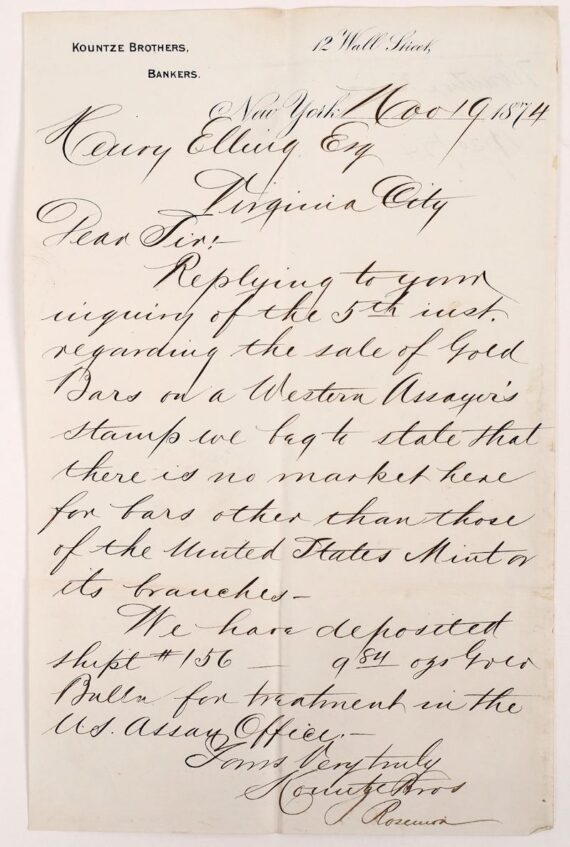 KOUNTZE BROTHERS,
BANKERS.
12 Wall Street,
New York Nov 19 1874
Henry Elling Esq
Virginia City
Dear Sir:-
Replying to your
inquiry of the 5th inst.
regarding the sale of Gold
Bars on a Western Assayer's
stamp we beg to state that
there is no market here
for bars other than those
of the United States Mint or
its branches-
We have deposited
shipt #156 — 9 84 ozs Gold
Bulln for treatment in the
U.S. Assay Office.-
Yours Very truly
Kountze Bros